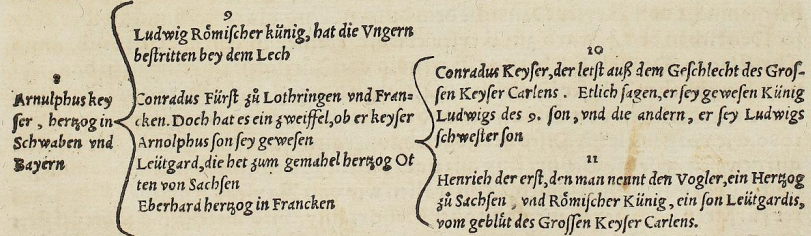 8
Arnulphus key
ser, hertzog in
Schwaben vnd
Bayern
9
Ludwig Roͤmischer kuͤnig, hat die Vngern
bestritten bey dem Lech
Conradus Fuͤrst zuͦ Lothringen vnd Fran⸗
cken. Doch hat es ein zweiffel, ob er keyser
Arnolphus son sey gewesen
Leuͤtgard, die het zum gemahel hertzog Ot
ten von Sachsen
Eberhard hertzog in Francken
10
Conradus Keyser, der letst auß dem Geschlecht des Gros⸗
sen Keyser Carlens. Etlich sagen, er sey gewesen Kuͤnig
Ludwigs des 9. son, vnd die andern, er sey Ludwigs
schwester son
11
Henrich der erst, den man nennt den Vogler, ein Hertzog
zuͦ Sachsen, vnd Roͤmischer Kuͤnig, ein son Leuͤtgardis,
vom gebluͤt des Grossen Keyser Carlens.